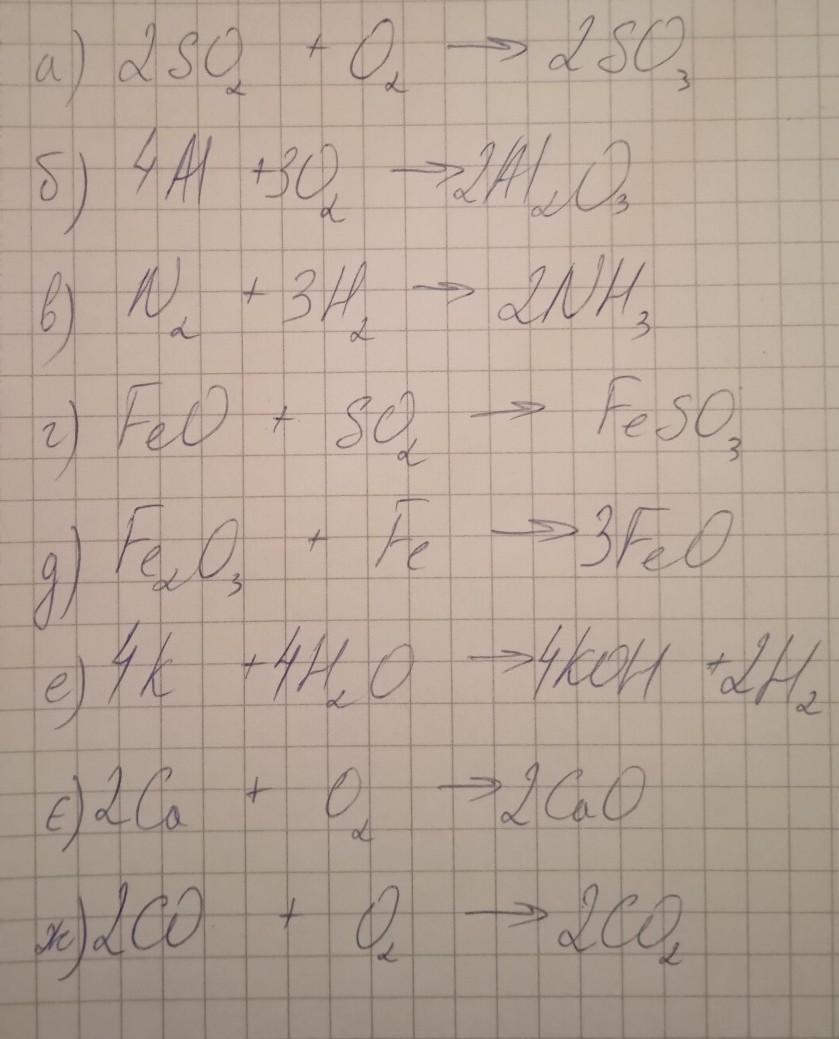 а) 2SO₂ + O₂ → 2SO₃
б) 4Al +3O₂ → 2Al₂O₃
в) N₂ + 3H₂ → 2NH₃
г) FeO + SO₂ → FeSO₃
д) Fe₂O₃ + Fe → 3FeO
е) 4K +4H₂O → 4KOH +2H₂
є) 2Ca + O₂ → 2CaO
ж) 2CO + O₂ → 2CO₂